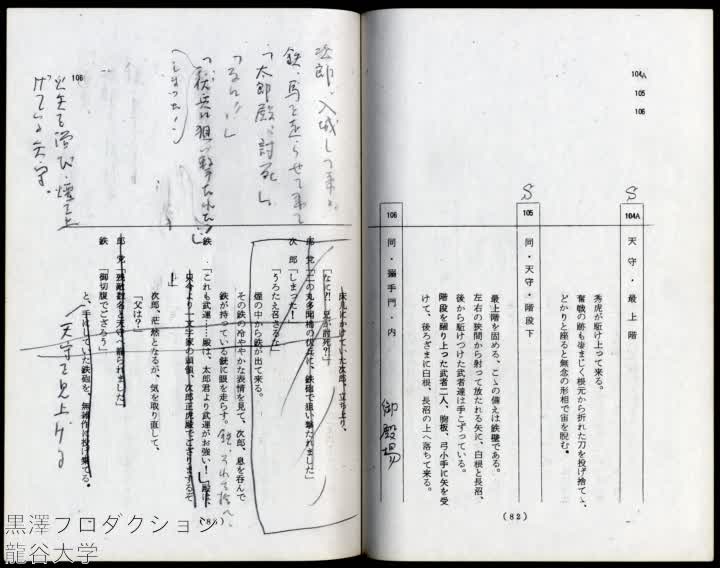 104A
105
106
S
104A 天守・最上階
秀虎が駈け上って来る。
奮戦の跡も凄まじく根元から折れた刀を投げ捨て、
どかりと座ると無念の形相で宙を睨む。
S
105 同・天守・階段下
最上階を固める、こゝの備えは鉄壁である。
左右の狭間から射って放たれる矢に、白根と長沼、
後から駈けつけた武者達は手こずっている。
階段を躍り上った武者二人、胸板、弓小手に矢を受
けて、後ろざまに白根、長沼の上へ落ちて来る。
106 同・搦手門・内
御殿場
(82)
次郎、入城して来る。
鉄、馬を走らせて来て
「太郎殿、討死」
「なに!」
「伏兵に狙い撃たれた」
「しまった!」
床几にかけていた次郎、立ち上り、
「なに?! 兄が討死?」
郎党「二の丸多聞櫓の伏兵に、鉄砲で狙い撃たれました」
次郎「しまった!
「うろたえ召さるな」
煙の中から鉄が出て来る。
その鉄の冷ややかな表情を見て、次郎、息を呑んで
鉄が持っている銃に眼を走らす。
鉄「これも武運……殿は、太郎君より武運がお強い!
只今より一文字家の頭領、次郎正虎殿でござりまするぞ
次郎、茫然となるが、気を取り直して、
「父は?」
郎党「残敵数名と天守へ籠られました」
鉄「御切腹でござろう」
と、手にしていた鉄砲を、無雑作に投げ棄てる。
天守を見上げる
106
火矢を浴び、煙を上
げている天守。
黒澤プロダクション
龍谷大学